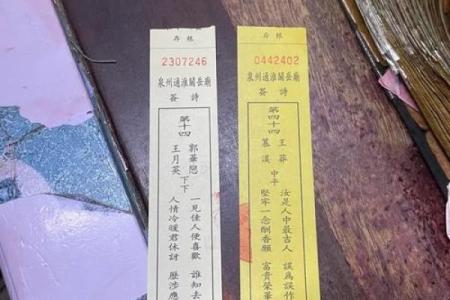 存根
2307246
泉州通淮關岳廟
簽詩
第十四
郭華戀
王月英
下下
一見佳人便喜歡
誰知去
人情冷暖君休討
歷涉應
存根
0442402
泉州通淮關岳廟
簽詩
第四十四
王莽
篡漢
中平
汝是人中最吉人
誤為誤作
堅牢一念酬香願
富貴榮華